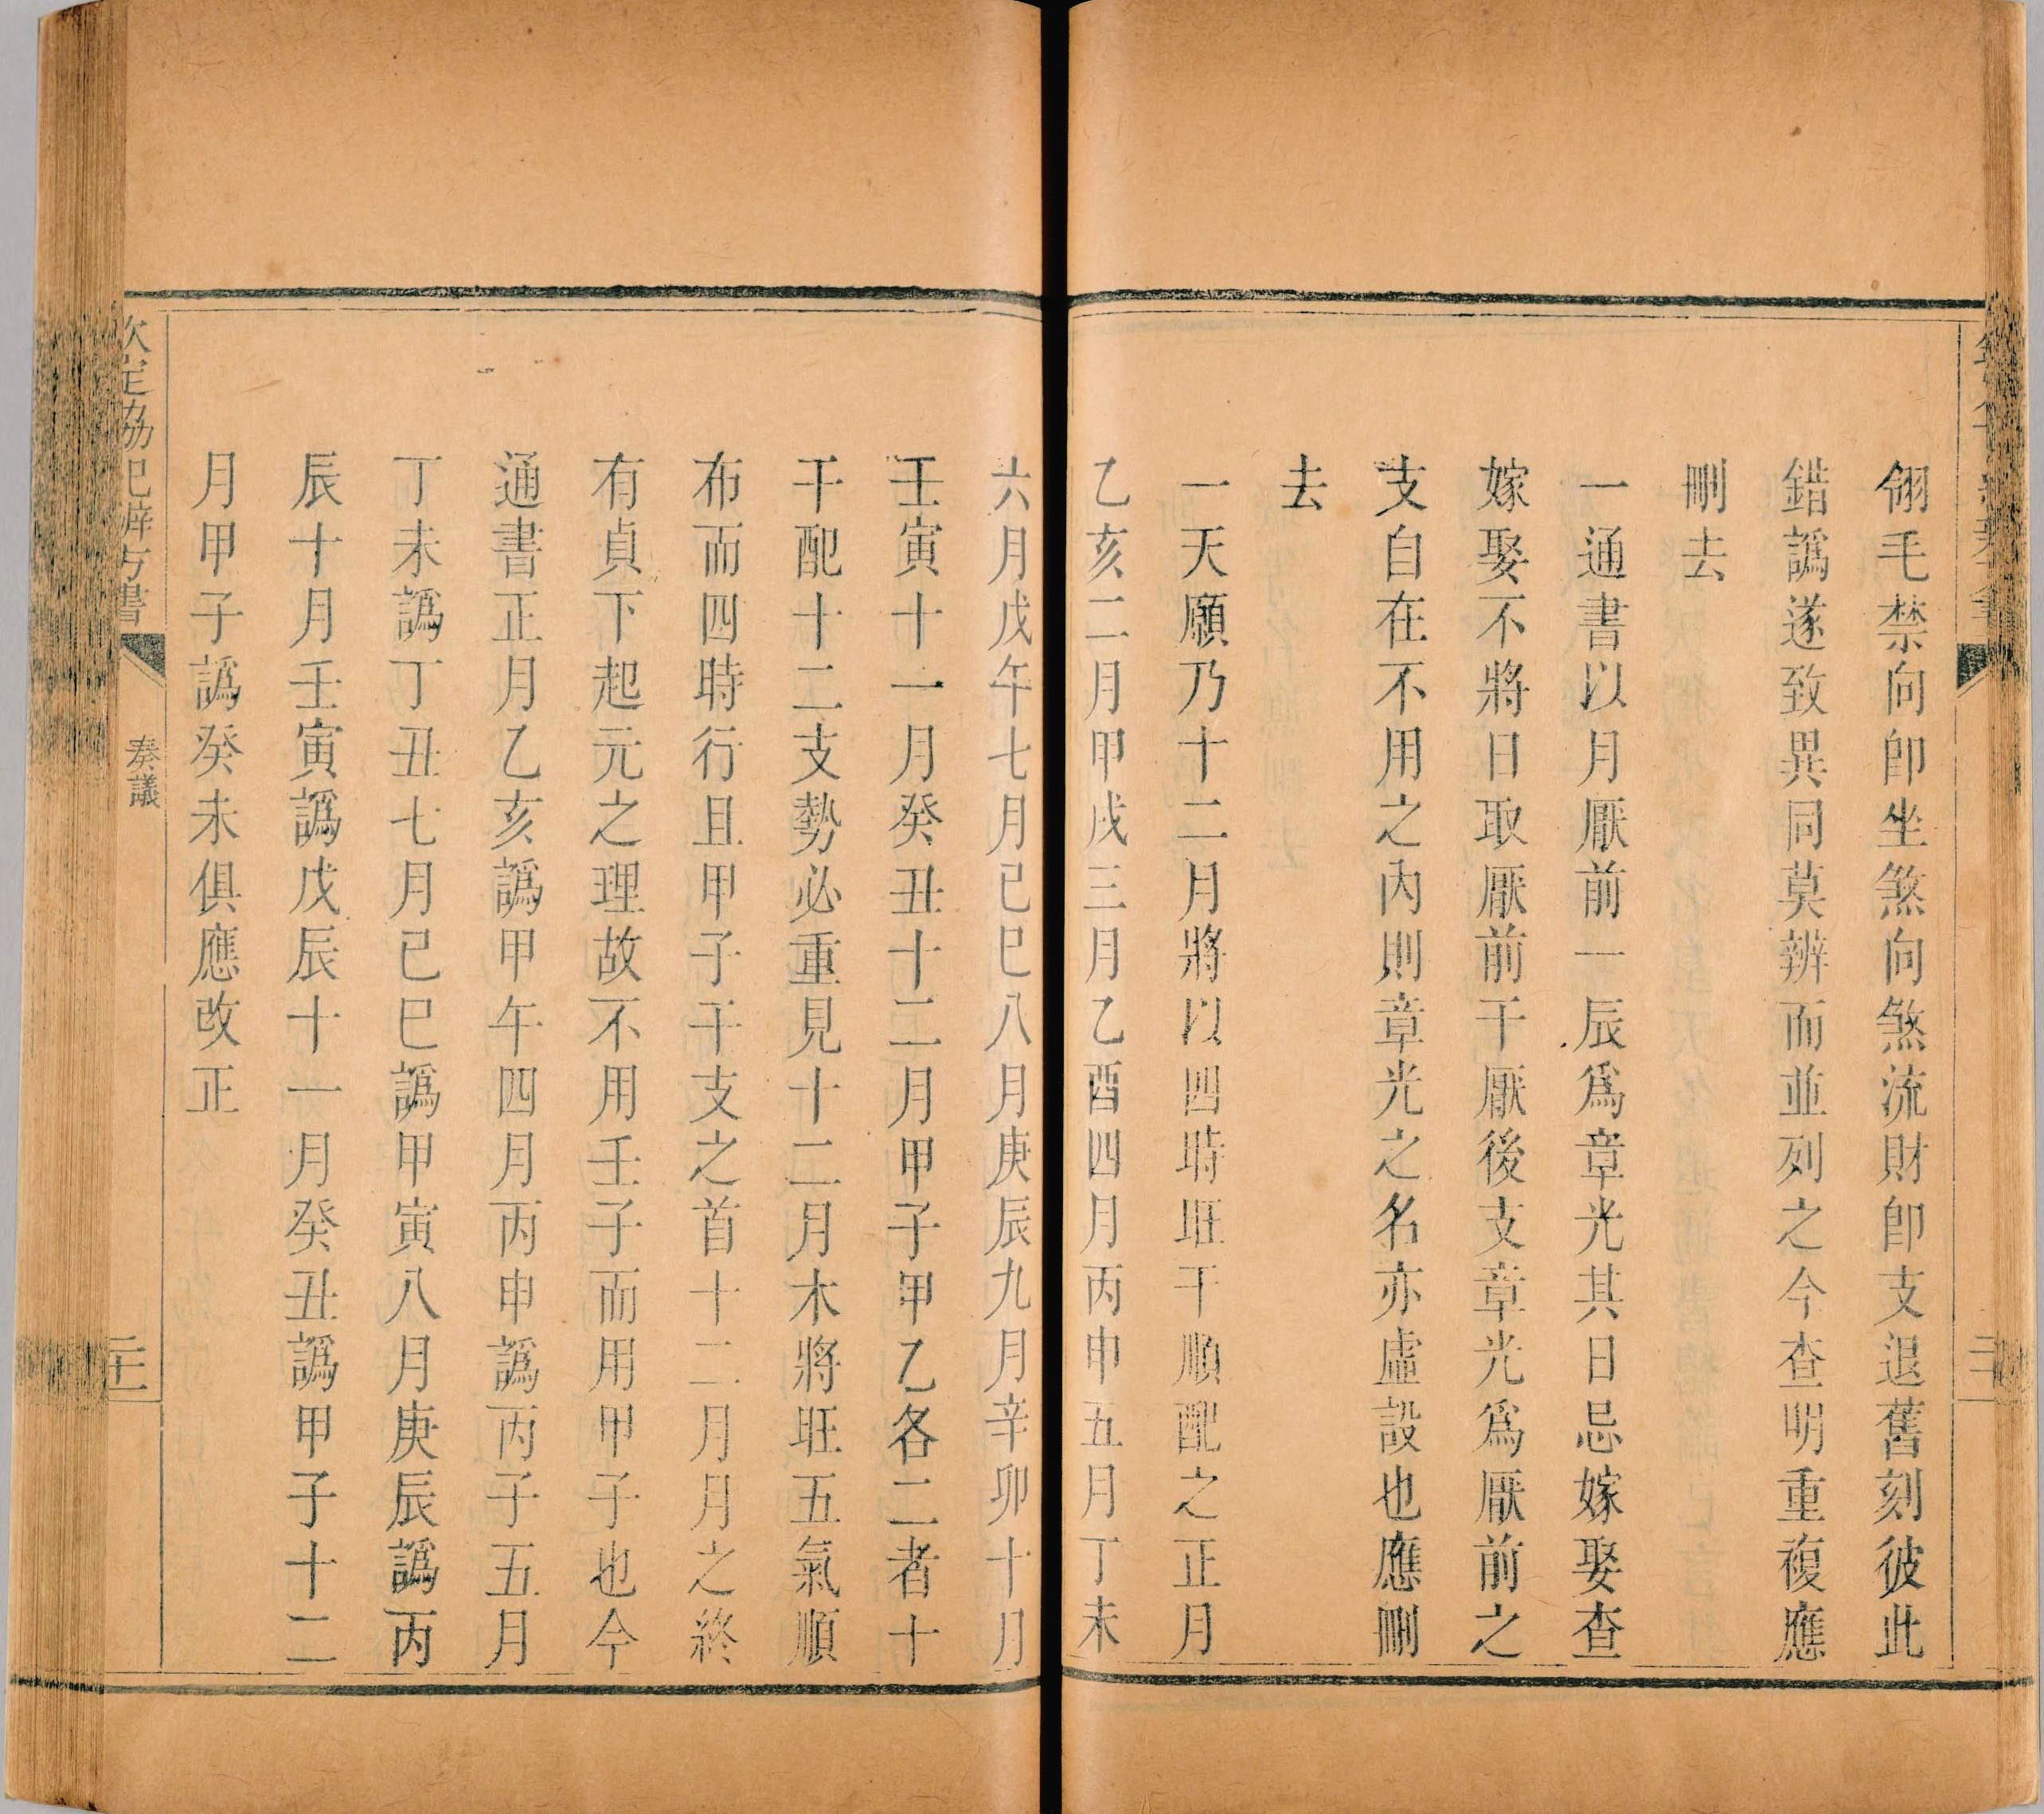 翎毛禁向卽坐煞向煞流財卽支退舊刻彼此
錯譌遂致異同莫辨而並列之今查明重複應
刪去
一通書以月厭前一辰爲章光其日忌嫁娶查
嫁娶不將日取厭前干厭後支章光爲厭前之
支自在不用之內則章光之名亦虛設也應刪
去
一天願乃十二月將以四時旺干順配之正月
乙亥二月甲戌三月乙酉四月丙申五月丁未
六月戊午七月己巳八月庚辰九月辛卯十月
壬寅十一月癸丑十二月甲子甲乙各二者十
干配十二支勢必重見十二月木將旺五氣順
布而四時行且甲子干支之首十二月月之終
有貞下起元之理故不用壬子而用甲子也今
通書正月乙亥譌甲午四月丙申譌丙子五月
丁未譌丁丑七月己巳譌甲寅八月庚辰譌丙
辰十月壬寅譌戊辰十一月癸丑譌甲子十二
月甲子譌癸未俱應改正
欽定協紀辨方書
奏議